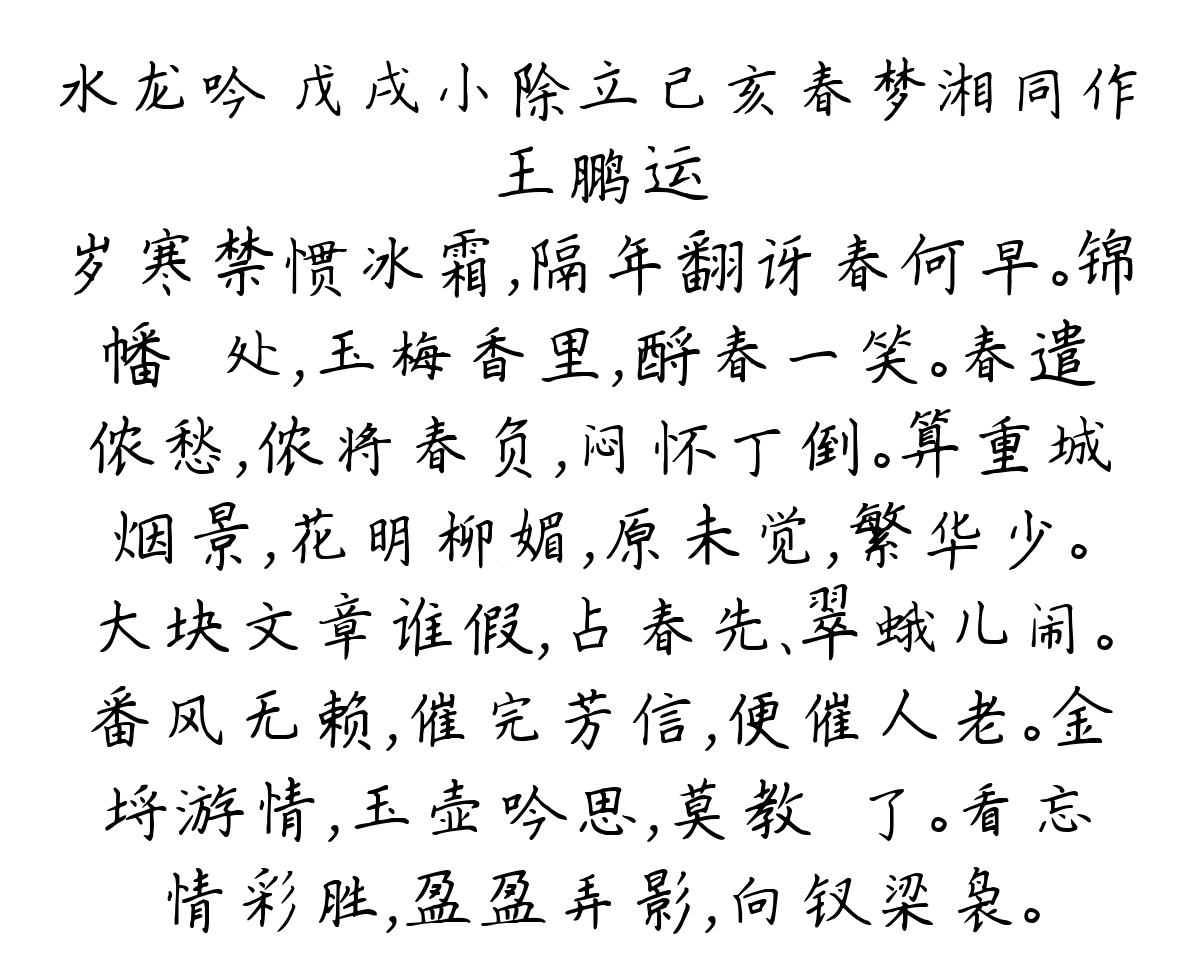 水龙吟 戊戌小除立己亥春梦湘同作
王鹏运
岁寒禁惯冰霜,隔年翻讶春何早。锦
幡 处,玉梅香里,酹春一笑。春遣
侬愁,侬将春负,闷怀丁倒。算重城
烟景,花明柳媚,原未觉,繁华少。
大块文章谁假,占春先、翠蛾儿闹。
番风无赖,催完芳信,便催人老。金
埒游情,玉壶吟思,莫教 了。看忘
情彩胜,盈盈弄影,向钗梁袅。